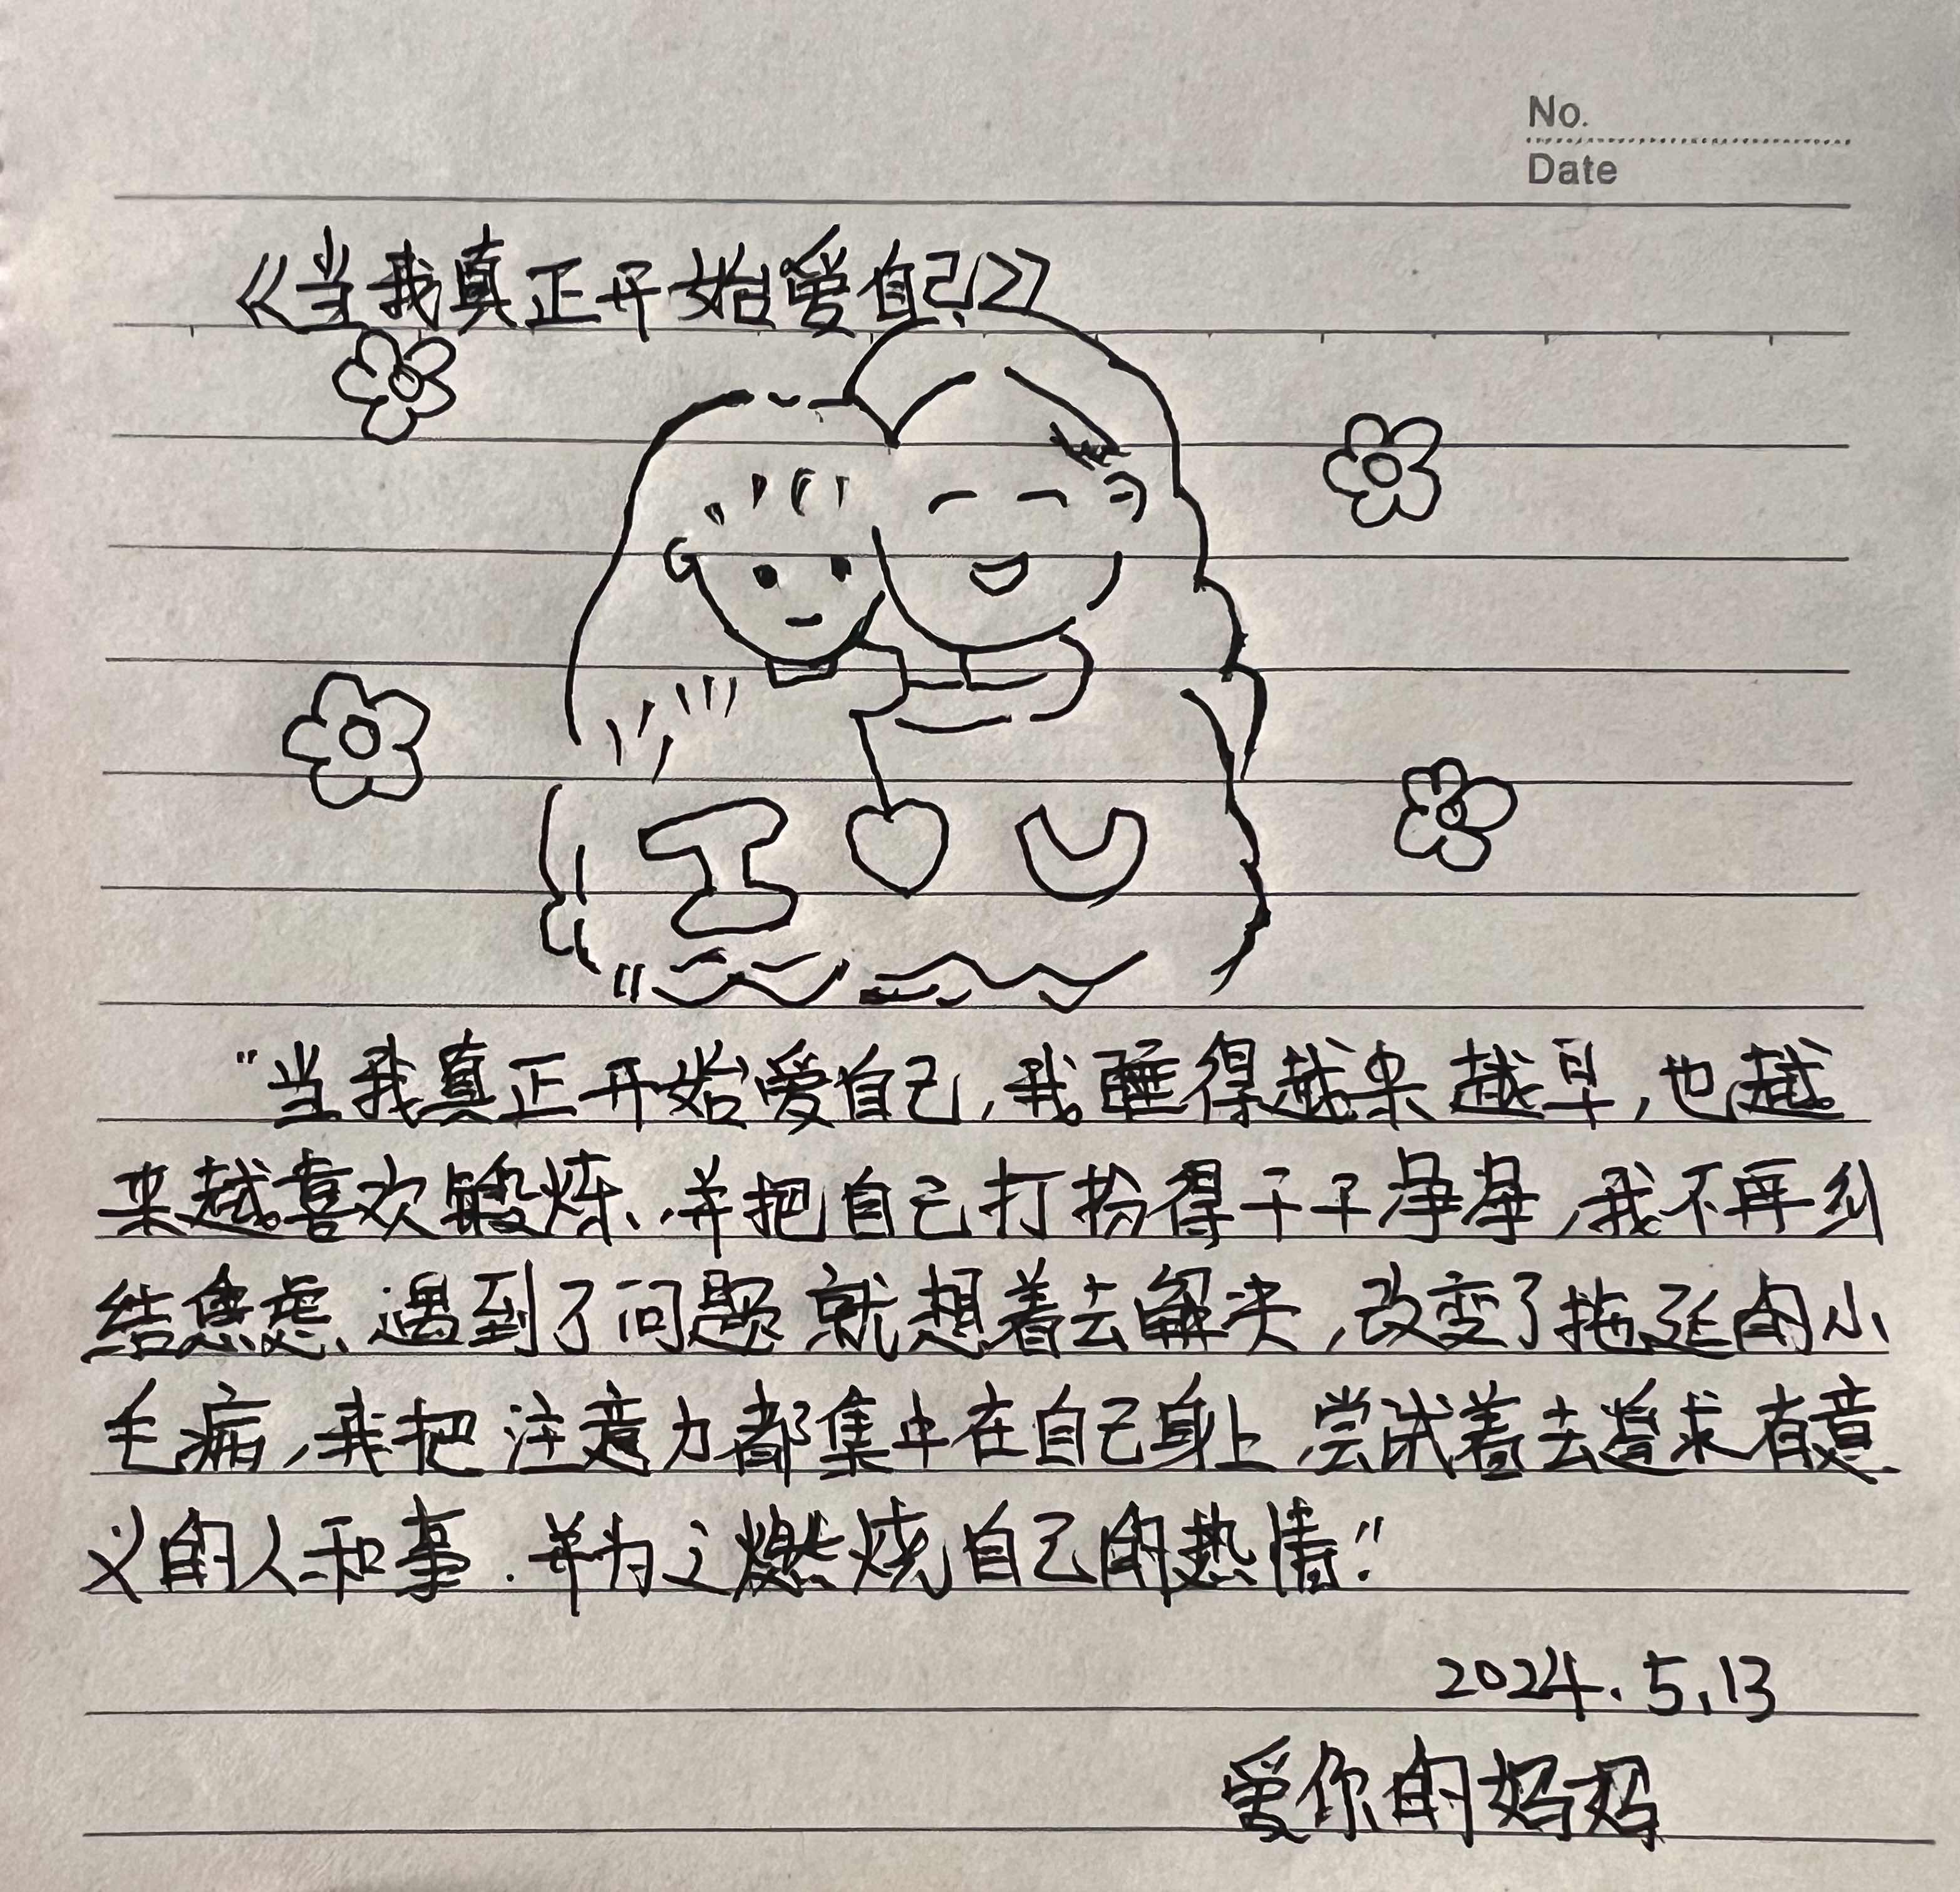 No.
Date
《当我真正开始爱自己》
I U
"当我真正开始爱自己,我睡得越来越早,也越
来越喜欢锻炼、并把自己打扮得干干净净,我不再纠
结焦虑、遇到了问题就想着去解决,改变了拖延的小
毛病,我把注意力都集中在自己身上,尝试着去追求有意
义的人和事.并为之燃烧自己的热情."
2024.5.13
爱你的妈妈